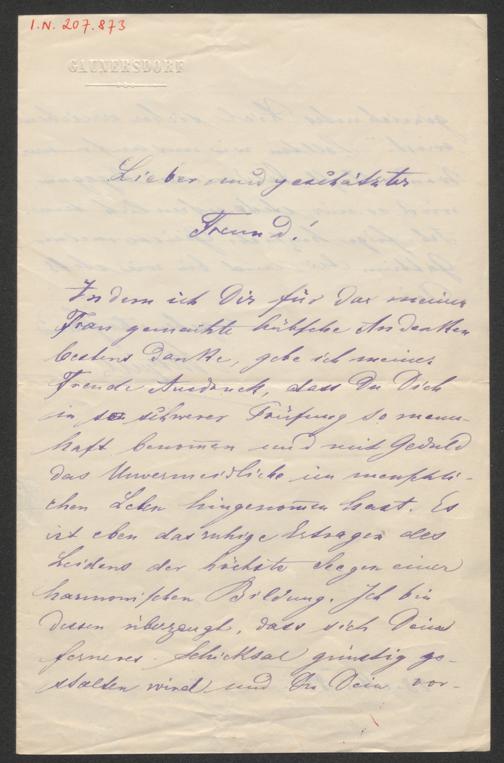 I.N. 207.873
GAUNERSDORF
Lieber und geschätzter
Freund!
Indem ich Dir für das meiner
Frau gemachte hübsche Andenken
bestens danke, gebe ich meiner
Freude Ausdruck, dass Du Dich
in so schwerer Prüfung so mann-
haft benommen und mit Geduld
das Unvermeidliche im menschli-
chen Leben hingenommen hast. Es
ist eben das ruhige Ertragen des
Leidens der höchste Seegen einer
harmonischen Bildung. Ich bin
dessen überzeugt, dass sich Dein
ferneres Schicksal günstig ge-
stalten wird und Du Dein vor-